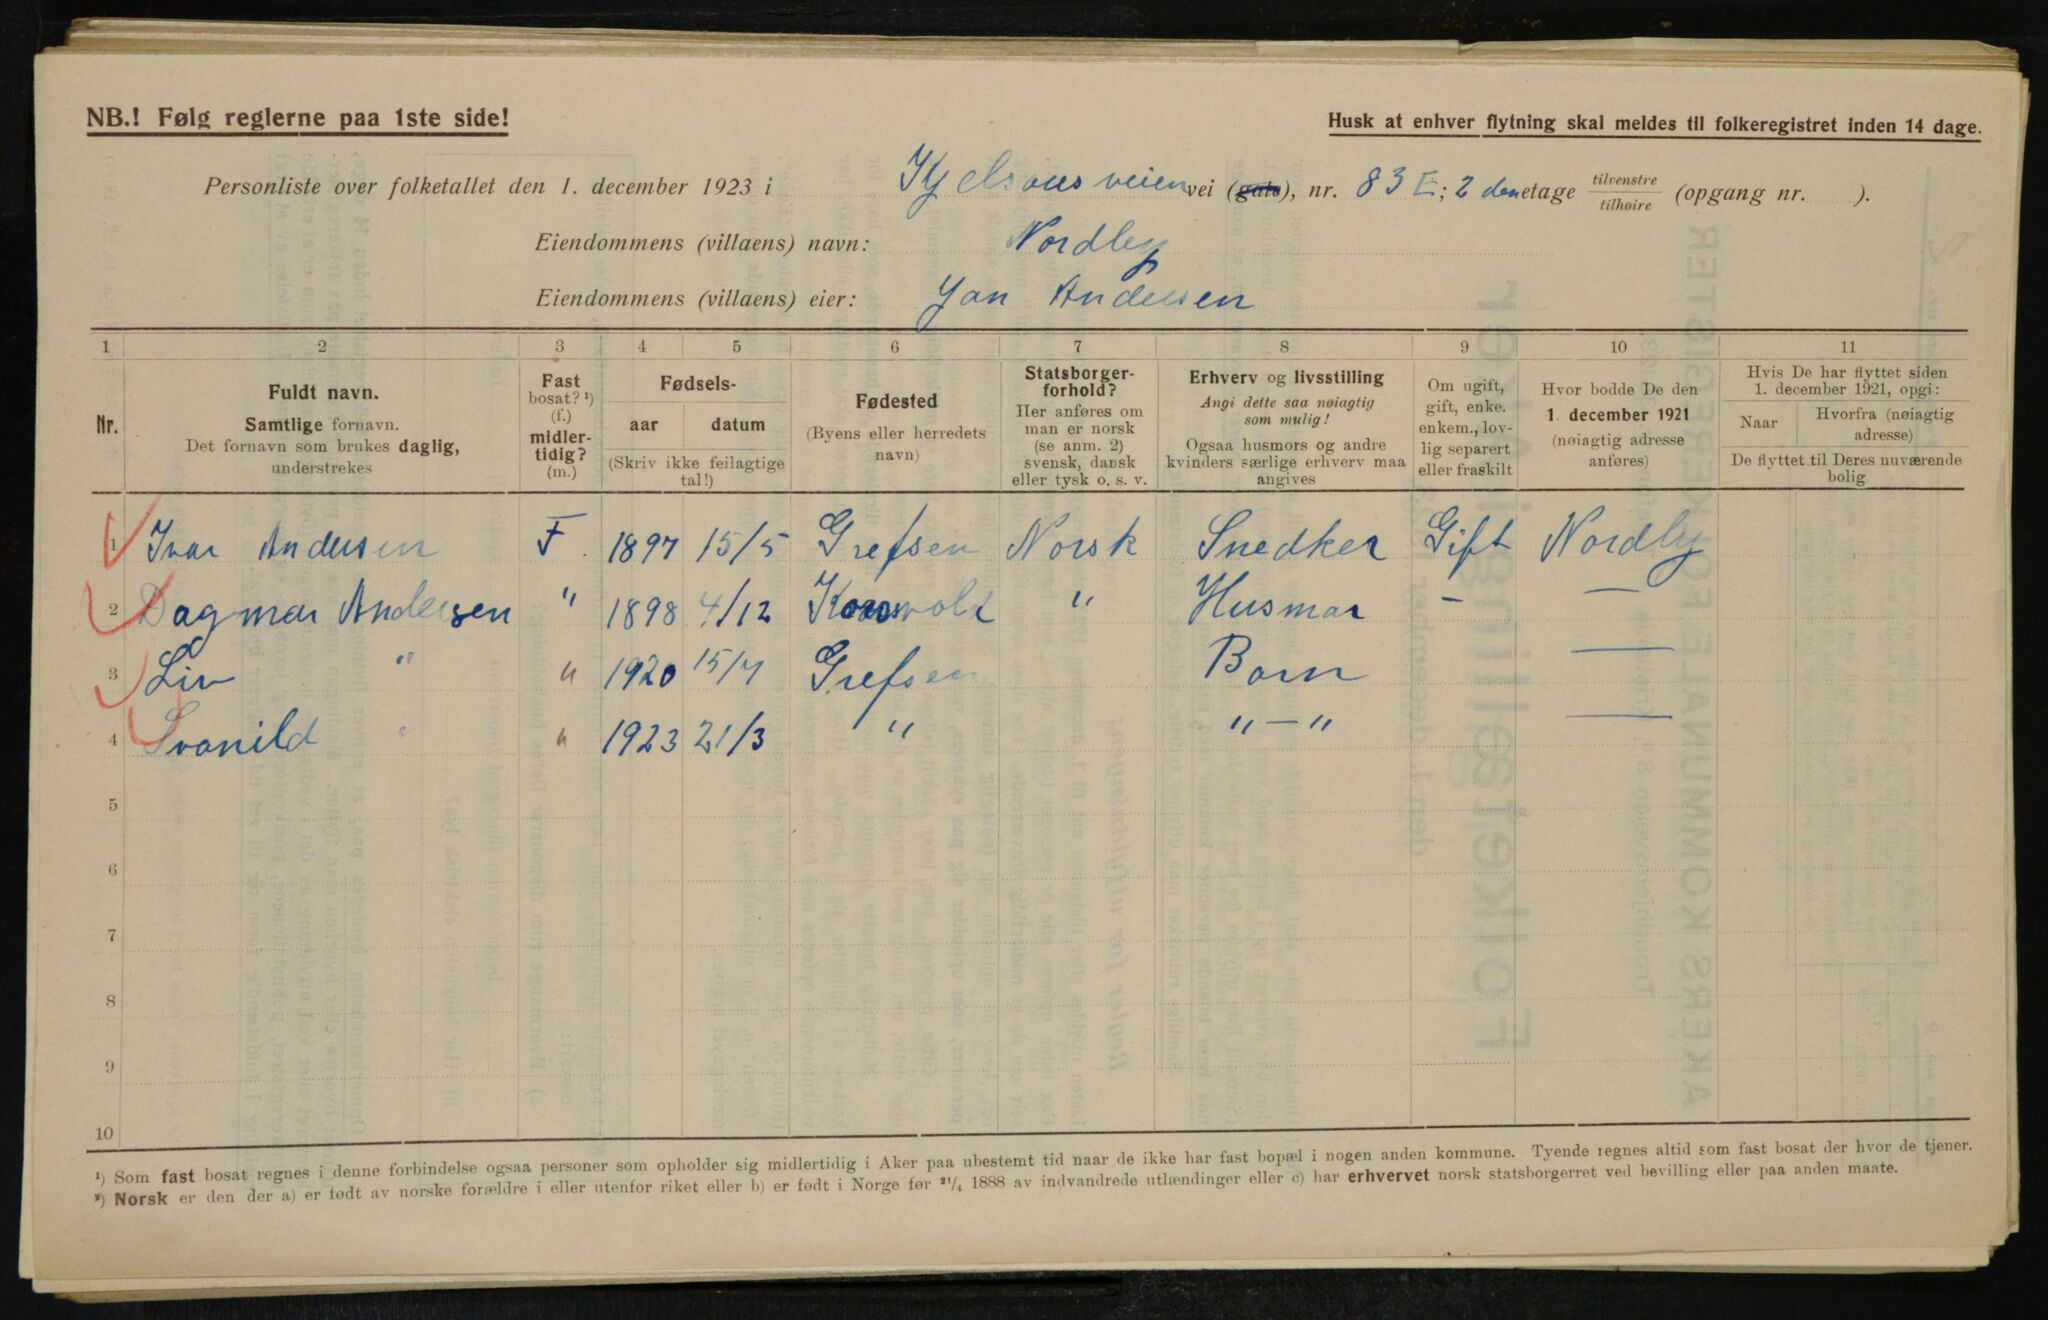 NB.! Følg reglerne paa 1ste side!
Husk at enhver flytning skal meldes til folkeregistret inden 14 dage.
Personliste over folketallet den 1. december 1923 i Kjelsaasveien vei (gate), nr. 83 E; 2 den etage tilvenstre / tilhøire (opgang nr. ).
Eiendommens (villaens) navn: Nordby
Eiendommens (villaens) eier: Jan Andersen
1 2 3 4 5 6 7 8 9 10 11
Nr.
Fuldt navn.
Samtlige fornavn.
Det fornavn som brukes daglig,
understrekes
Fast
bosat? ¹)
(f.)
midler-
tidig?
(m.)
Fødsels-
aar datum
(Skriv ikke feilagtige
tal!)
Fødested
(Byens eller herredets
navn)
Statsborger-
forhold?
Her anføres om
man er norsk
(se anm. 2)
svensk, dansk
eller tysk o. s. v.
Erhverv og livsstilling
Angi dette saa nøiagtig
som mulig!
Ogsaa husmors og andre
kvinders særlige erhverv maa
angives
Om ugift,
gift, enke.
enkem., lov-
lig separert
eller fraskilt
Hvor bodde De den
1. december 1921
(nøiagtig adresse
anføres)
Hvis De har flyttet siden
1. december 1921, opgi:
Naar
Hvorfra (nøiagtig
adresse)
De flyttet til Deres nuværende
bolig
1 Ivar Andersen F. 1897 15/5 Grefsen Norsk Snedker Gift Nordby
2 Dagmar Andersen " 1898 4/12 " Husmar - —
3 Liv " " 1920 15/7 Grefsen Barn —
4 Svanild " " 1923 21/3 " "—" —
5
6
7
8
9
10
¹) Som fast bosat regnes i denne forbindelse ogsaa personer som opholder sig midlertidig i Aker paa ubestemt tid naar de ikke har fast bopæl i nogen anden kommune. Tyende regnes altid som fast bosat der hvor de tjener.
²) Norsk er den der a) er født av norske forældre i eller utenfor riket eller b) er født i Norge før ²¹/₄ 1888 av indvandrede utlændinger eller c) har erhvervet norsk statsborgerret ved bevilling eller paa anden maate.